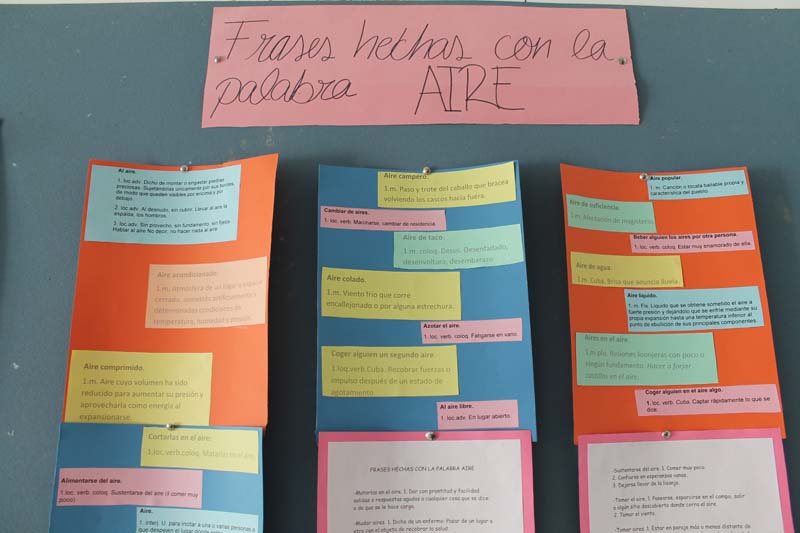 Frases hechas con la
palabra AIRE
Al aire.
1. loc.adv. Dicho de montar o engastar piedras
preciosas: Sujetándolas únicamente por sus bordes,
de modo que queden visibles por encima y por
debajo.
2. loc.adv. Al desnudo, sin cubrir. Llevar al aire la
espalda, los hombros.
3. loc.adv. Sin provecho, sin fundamento, sin fijeza
Hablar al aire No decir, no hacer nada al aire
Aire acondicionado.
1.m. Atmósfera de un lugar o espacio
cerrado, sometido artificialmente a
determinadas condiciones de
temperatura, humedad y presión.
Aire comprimido.
1.m. Aire cuyo volumen ha sido
reducido para aumentar su presión y
aprovecharla como energía al
expansionarse.
Cortarlas en el aire:
1.loc.verb.coloq. Matarlas en el aire
Alimentarse del aire.
1.loc. verb. coloq. Sustentarse del aire (ǁ comer muy
poco)
Aire.
1. interj. U. para incitar a una o varias personas a
que despejen el lugar donde
Aire campero.
1.m. Paso y trote del caballo que bracea
volviendo los cascos hacia fuera.
Cambiar de aires.
1. loc. verb. Marcharse, cambiar de residencia.
Aire de taco.
1.m. coloq. Desus. Desenfadado,
desenvoltura, desembarazo
Aire colado.
1.m. Viento frío que corre
encallejonado o por alguna estrechura.
Azotar el aire.
1. loc. verb. coloq. Fatigarse en vano
Coger alguien un segundo aire.
1.loq.verb.Cuba. Recobrar fuerzas o
impulso después de un estado de
agotamiento.
Al aire libre.
1. loc.adv. En lugar abierto
FRASES HECHAS CON LA PALABRA AIRE
-Matarlas en el aire. 1. Dar con prontitud y facilidad
salidas o respuestas agudas a cualquier cosa que se dice
o de que se le hace cargo.
-Mudar aires. 1. Dicho de un enfermo: Pasar de un lugar a
otro con el objeto de recobrar la salud.
Aire popular.
1. m. Canción o tocata bailable propia y
característica del pueblo
Aire de suficiencia.
1.m. Afectación de magisterio
Beber alguien los aires por otra persona.
1. loc. verb. coloq. Estar muy enamorado de ella
Aire de agua.
1.m. Cuba. Brisa que anuncia lluvia
Aire líquido.
1. m. Fís. Líquido que se obtiene sometido el aire a
fuerte presión y dejándolo que se enfríe mediante su
propia expansión hasta una temperatura inferior al
punto de ebullición de sus principales componentes.
Aires en el aire.
1.m.plu. Ilusiones lisonjeras con poco o
ningún fundamento. Hacer o forjar
castillos en el aire.
Coger alguien en el aire algo.
1. loc. verb. Cuba. Captar rápidamente lo que se
dice.
-Sustentarse del aire. 1. Comer muy poco.
2. Confiarse en esperanzas vanas.
3. Dejarse llevar de la lisonja.
-Tomar el aire. 1. Pasearse, esparcirse en el campo, salir
a algún sitio descubierto donde corra el aire.
2. Tomar el viento.
-Tomar aires. 1. Estar en paraje más o menos distante de